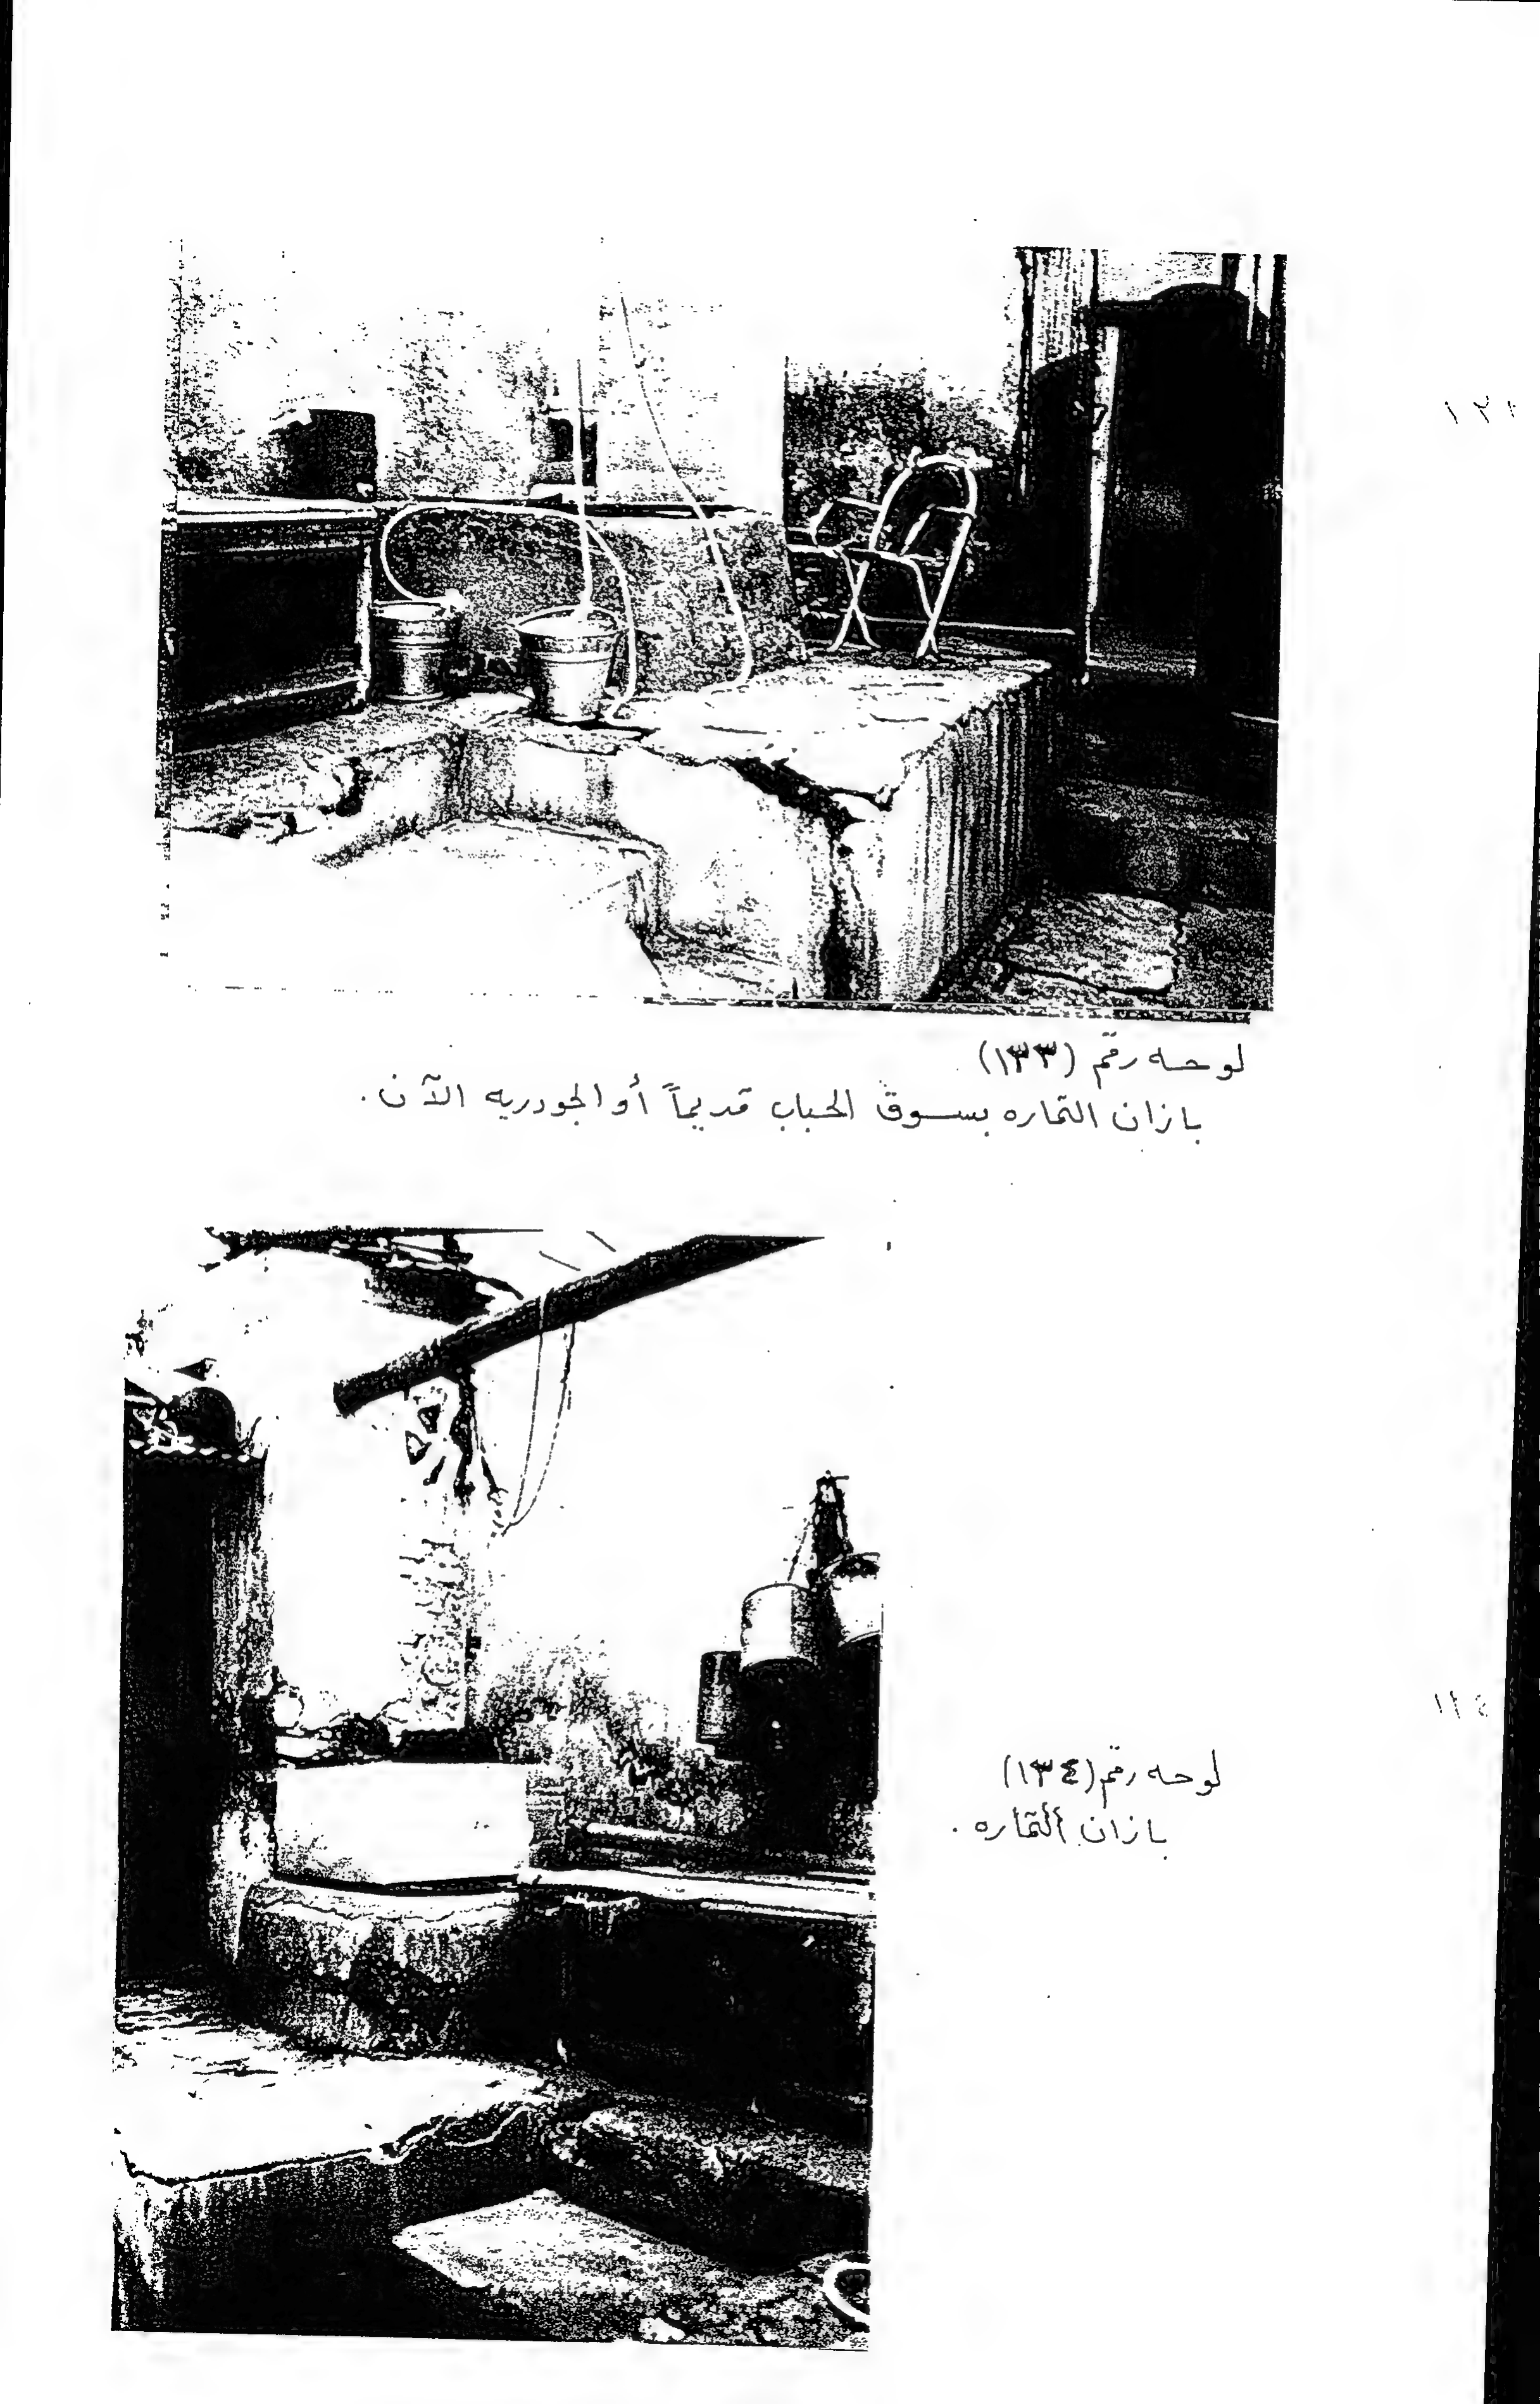 لوحه رقم (١٣٣)
بازان التماره بسوق الحباب قديماً أو الجودريه الآن.
لوحه رقم (١٣٤)
بازان التماره.